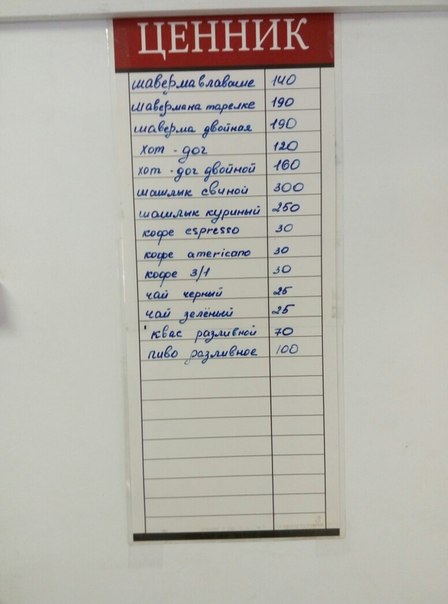 ЦЕННИК
шаверма в лаваше 140
шаверма на тарелке 190
шаверма двойная 190
хот-дог 120
хот-дог двойной 160
шашлык свиной 300
шашлык куриный 250
кофе espresso 30
кофе americano 30
кофе 3/1 30
чай черный 25
чай зелёный 25
квас разливной 70
пиво разливное 100